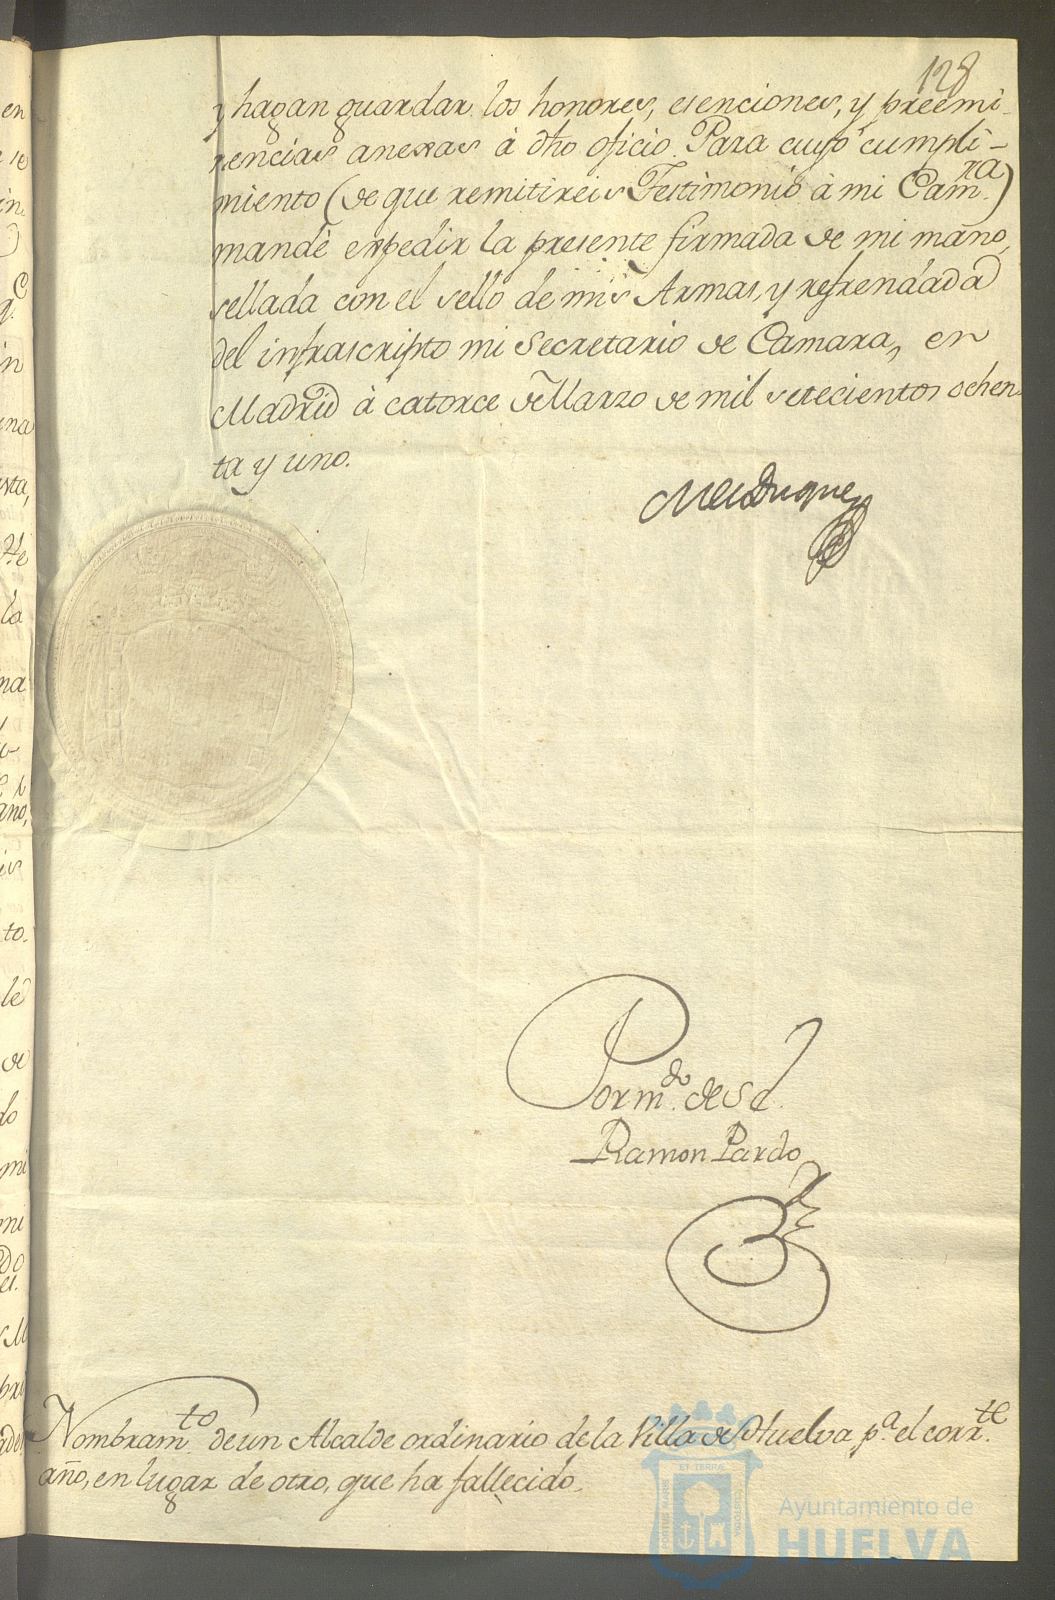 128
y hagan guardar los honores, esenciones, y preemi-
nencias anexas á dho oficio. Para cuyo cumpli-
miento (de que remitireis Testimonio à mi Cam.ra)
mandè expedir la presente firmada de mi mano,
sellada con el sello de mis Armas, y refrendada
del infrascripto mi Secretario de Camara, en
Madrid à catorce de Marzo de mil setecientos ochen-
ta y uno.
Por m.do de S E.
Ramon Pardo
Nombram.to de un Alcalde ordinario de la Villa de Huelva p.a el corr.te
año, en lugar de otro, que ha fallecido.
Ayuntamiento de
HUELVA